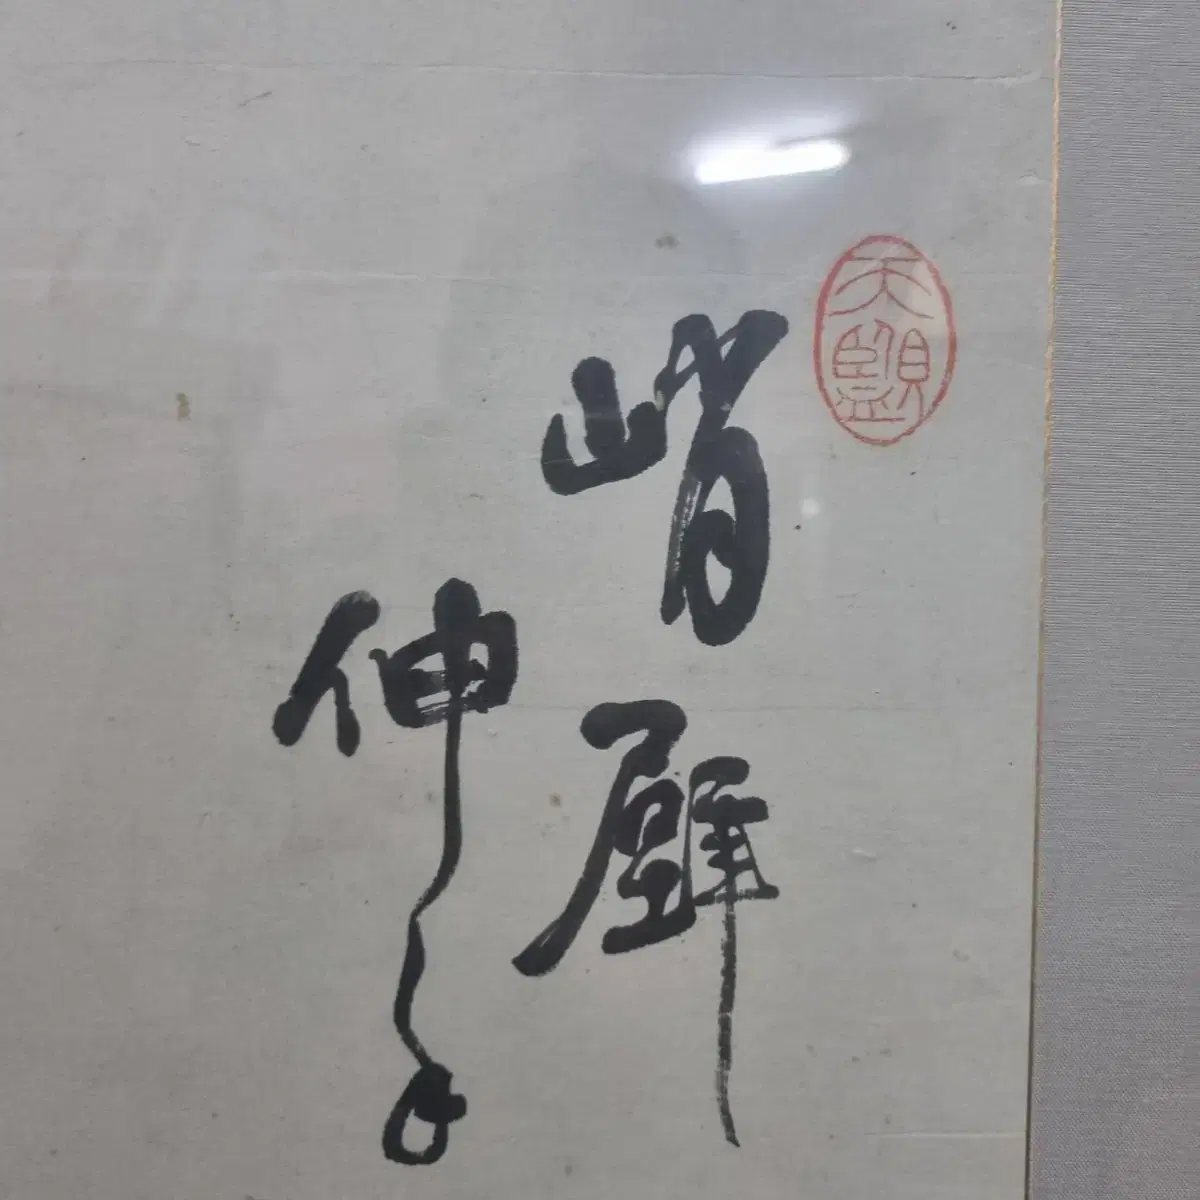 天
峭壁
伸